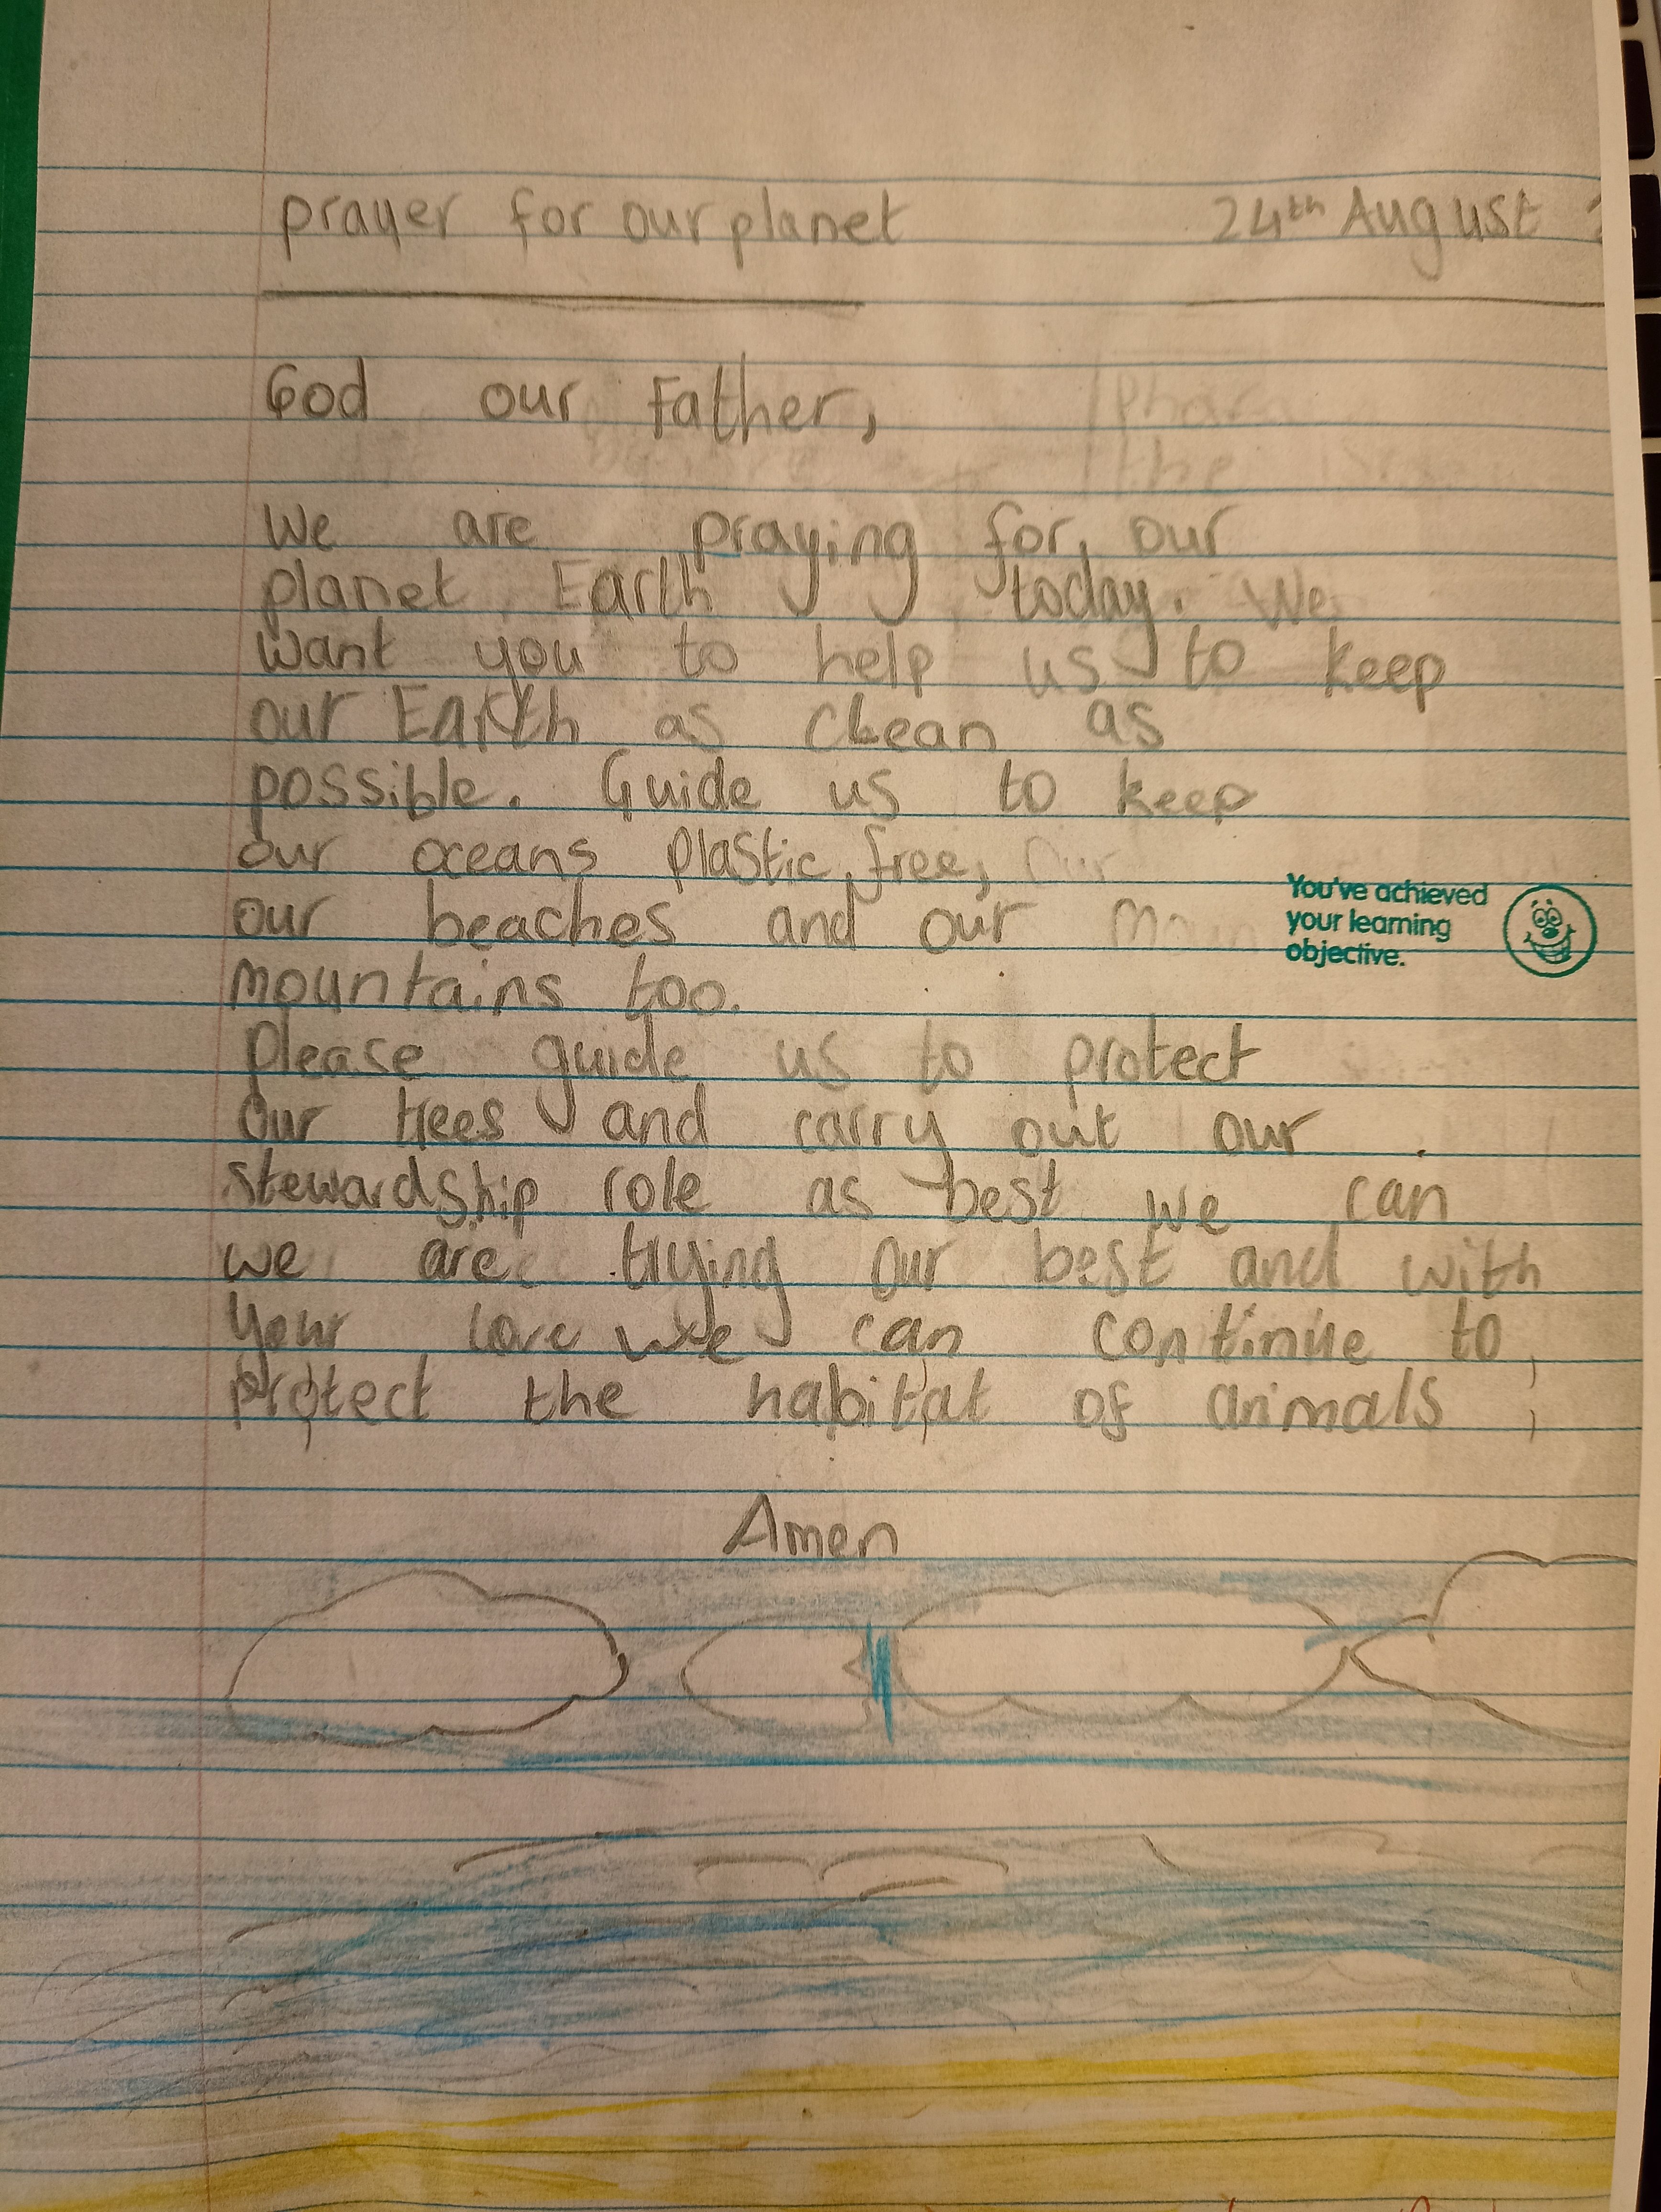 prayer for our planet 24th August
God our Father,
We are praying for our
planet Earth today. We
want you to help us to keep
our Earth as clean as
possible. Guide us to keep
our oceans plastic free, our
our beaches and our moun
You've achieved
your learning
objective.
mountains too.
please guide us to protect
our trees and carry out our
stewardship role as best we can
we are trying our best and with
your love we can continue to
protect the habitat of animals
Amen